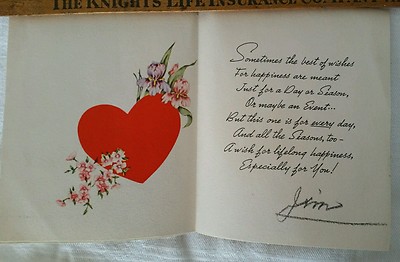 THE KNIGHTS LIFE INSURANCE COMPANY
Sometimes the best of wishes
For happiness are meant
Just for a Day or Season,
Or maybe an Event...
But this one is for every day,
And all the Seasons, too-
A wish for lifelong happiness,
Especially for You!
Jim